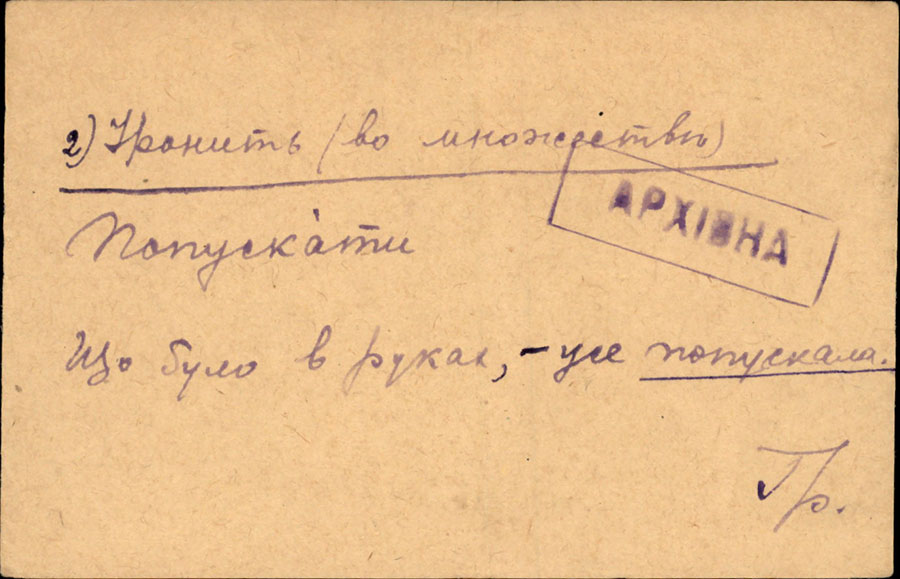 2) Уронить (во множестве)
АРХІВНА
Попуска́ти
Що було в руках, – усе попускала.
Гр.